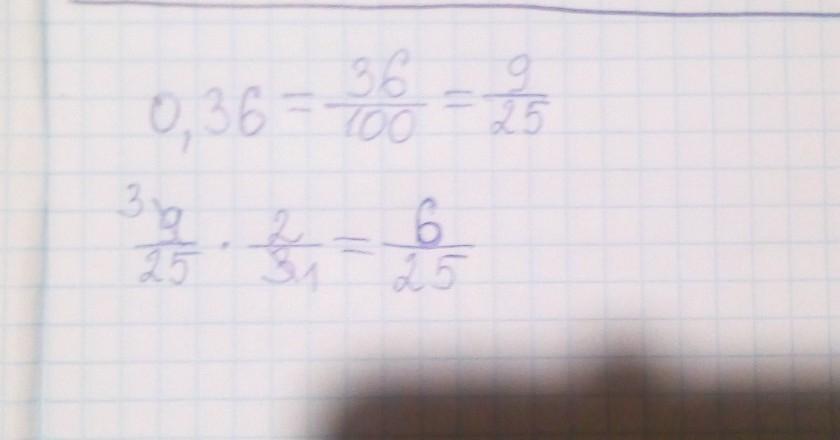 0,36 = 36/100 = 9/25
3 9/25 · 2/3 1 = 6/25